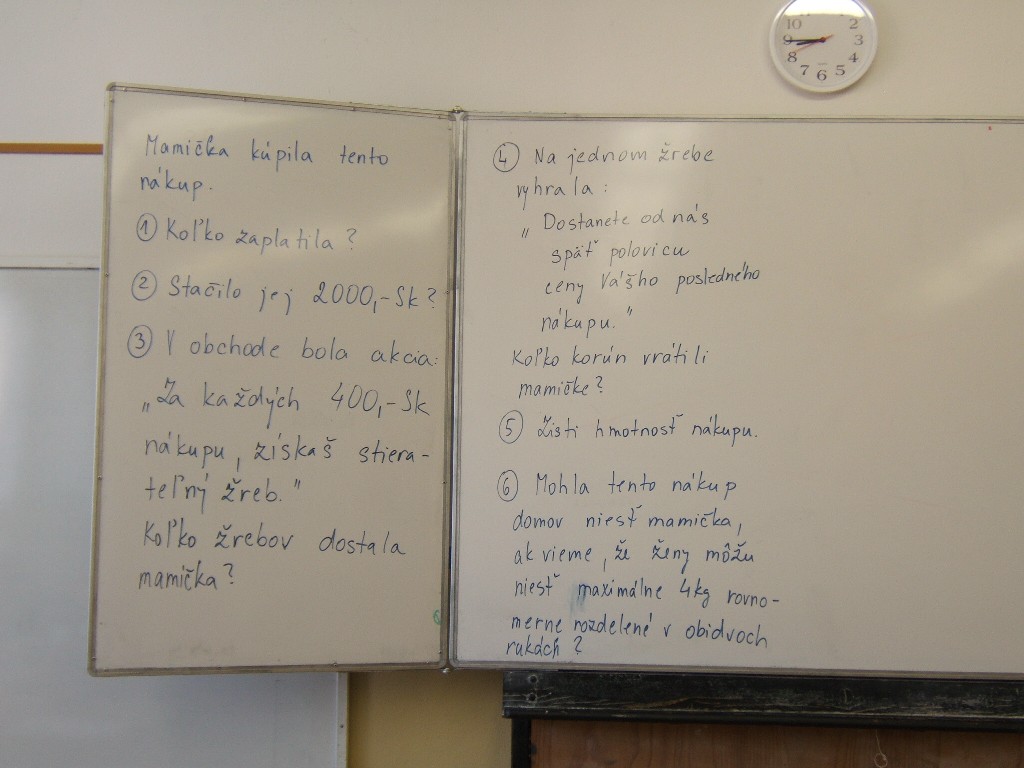 Mamička kúpila tento
nákup.
① Koľko zaplatila?
② Stačilo jej 2000,-Sk?
③ V obchode bola akcia:
„Za každých 400,-Sk
nákupu, získaš stiera-
teľný žreb."
Koľko žrebov dostala
mamička?
④ Na jednom žrebe
vyhrala:
„Dostanete od nás
späť polovicu
ceny Vášho posledného
nákupu."
Koľko korún vrátili
mamičke?
⑤ Zisti hmotnosť nákupu.
⑥ Mohla tento nákup
domov niesť mamička,
ak vieme, že ženy môžu
niesť maximálne 4kg rovno-
merne rozdelené v obidvoch
rukách?
10 2
9 3
8 4
7 6 5